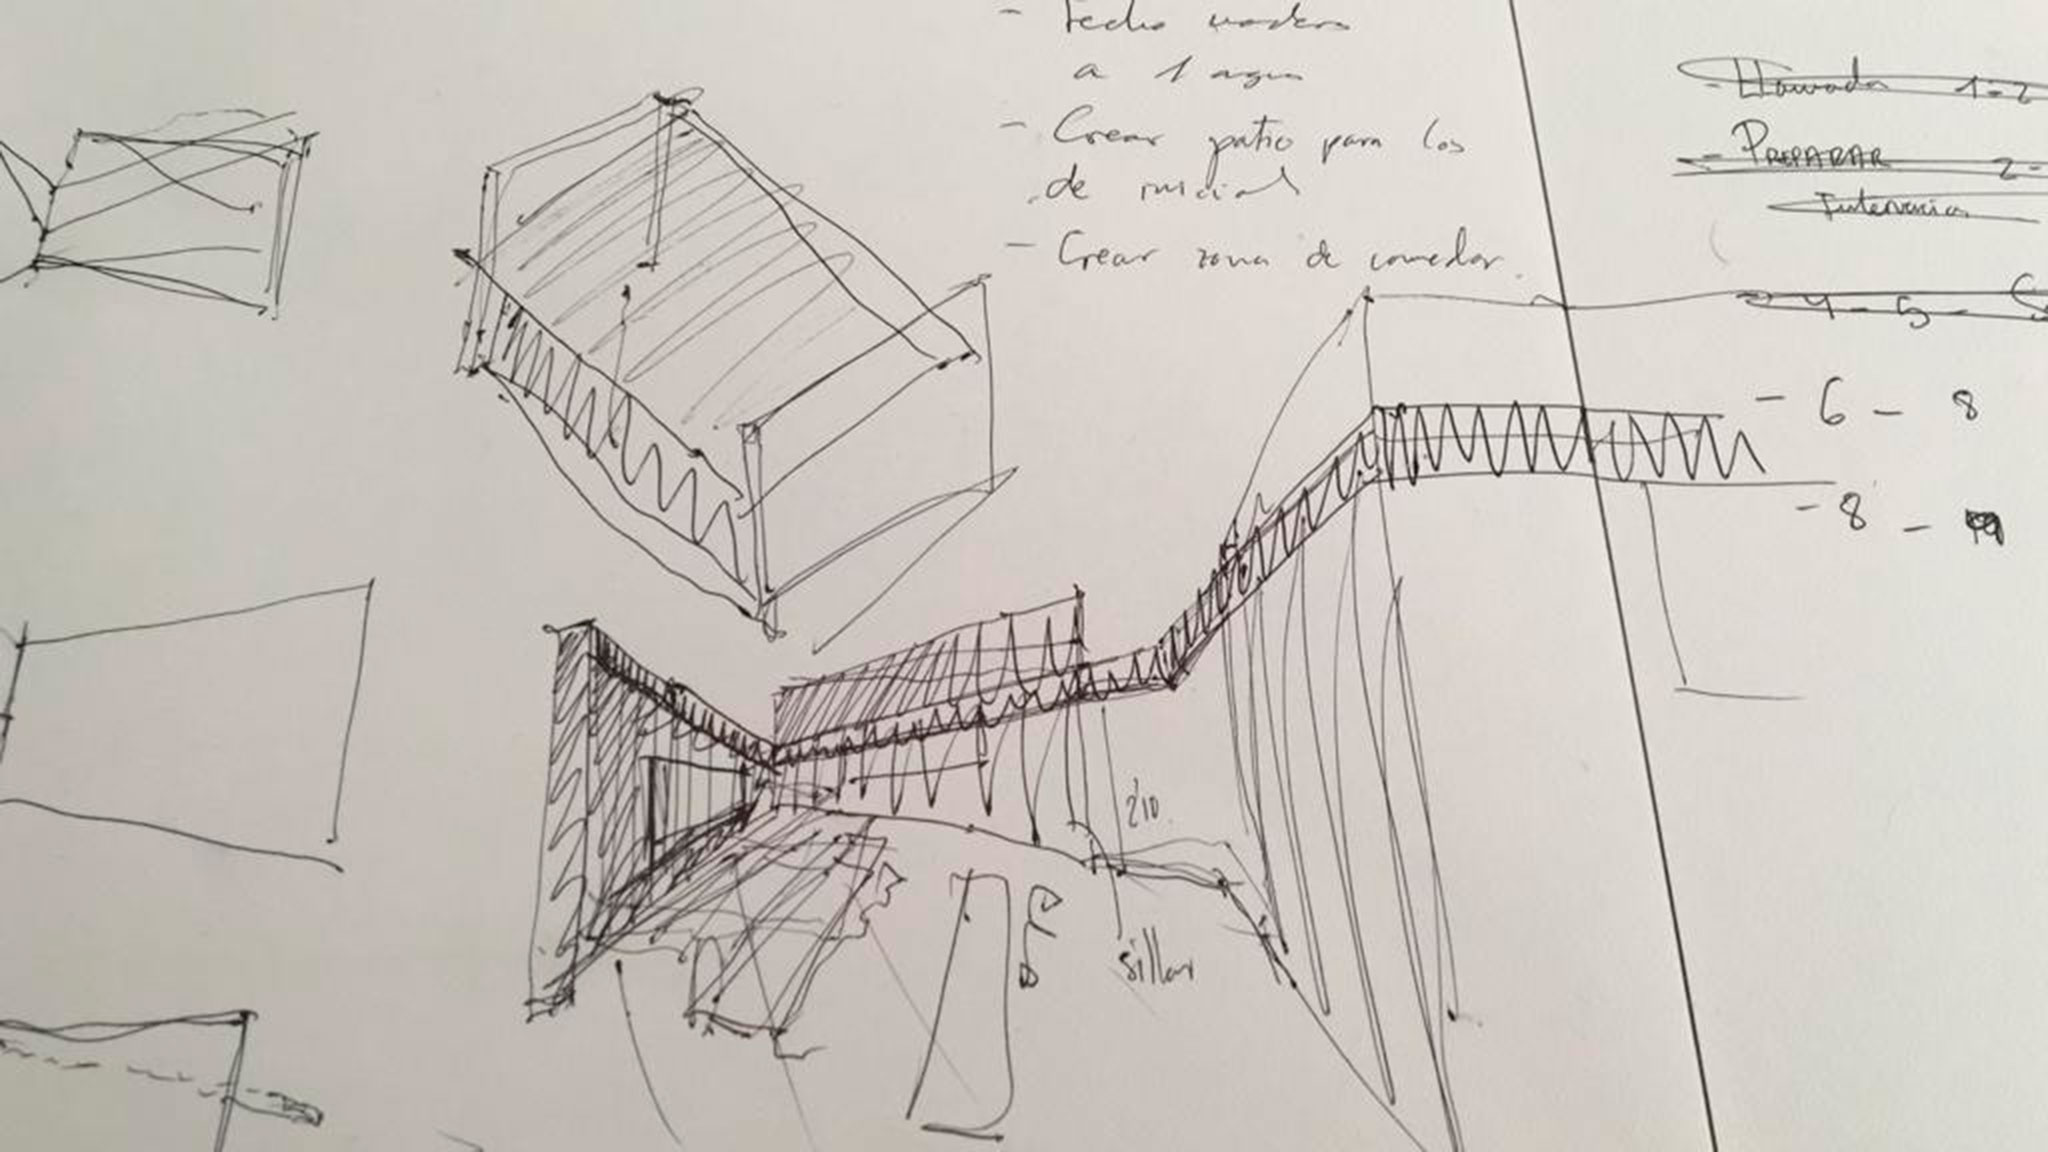 - Techo madera
a 1 agua
- Crear patio para los
de inicial
- Crear zona de comedor.
- Llamada 1-2
- PREPARAR 2-
Intervención
4-5-
- 6 - 8
- 8 -
2'10
sillar